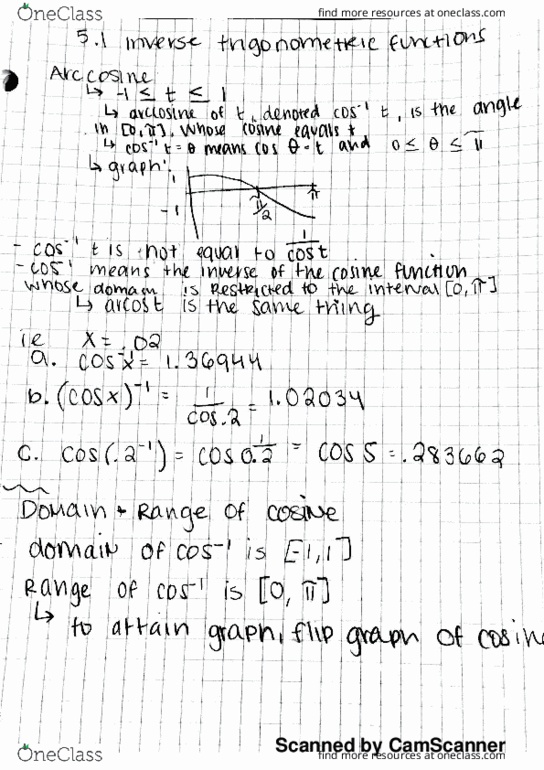 OneClass
find more resources at oneclass.com
5.1 inverse trigonometric functions
Arccosine
↳ -1 ≤ t ≤ 1
↳ arccosine of t, denoted cos⁻¹ t, is the angle
in [0,π], whose cosine equals t
↳ cos⁻¹ t = θ means cos θ = t and 0 ≤ θ ≤ π
↳ graph:
1
-1
π/2
π
- cos⁻¹ t is not equal to 1/cos t
- cos⁻¹ means the inverse of the cosine function
whose domain is restricted to the interval [0,π]
↳ arcost is the same thing
ie x = .02
a. cos⁻¹x = 1.36944
b. (cosx)⁻¹ = 1/cos.2 = 1.02034
c. cos(.2⁻¹) = cos 1/0.2 = cos 5 = .283662
Domain + Range of cosine
domain of cos⁻¹ is [-1,1]
Range of cos⁻¹ is [0, π]
↳ to attain graph, flip graph of cosine
Scanned by CamScanner
OneClass
find more resources at oneclass.com